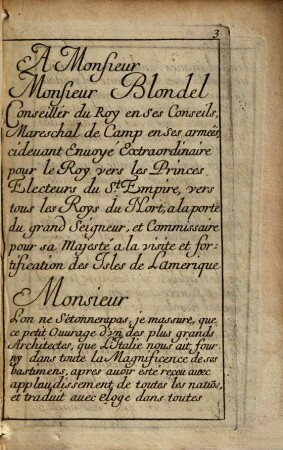 3
A Monsieur
Monsieur Blondel
Conseiller du Roy en ses Conseils,
Mareschal de Camp en ses armées,
cideuant Enuoyé Extraordinaire
pour le Roy vers les Princes
Electeurs du St. Empire, vers
tous les Roys du Nort, a la porte
du grand Seigneur, et Commissaire
pour sa Majesté a la visite et for=
tification des Isles de Lamerique
Monsieur
L'on ne S'étonnerapas, je massure, que
ce petit Ouurage d'vn des plus grands
Architectes, que L'Italie nous ait four
ny dans toute la Magnificence de ses
bastimens, apres auoir esté reçeu auec
applaudissement de toutes les natiõs,
et traduit auec eloge dans toutes